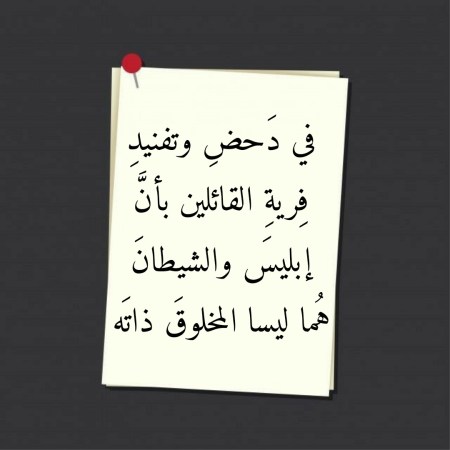 في دَحضِ وتفنيدِ
فِريةِ القائلين بأنَّ
إبليسَ والشيطانَ
هُما ليسا المخلوقَ ذاتَه